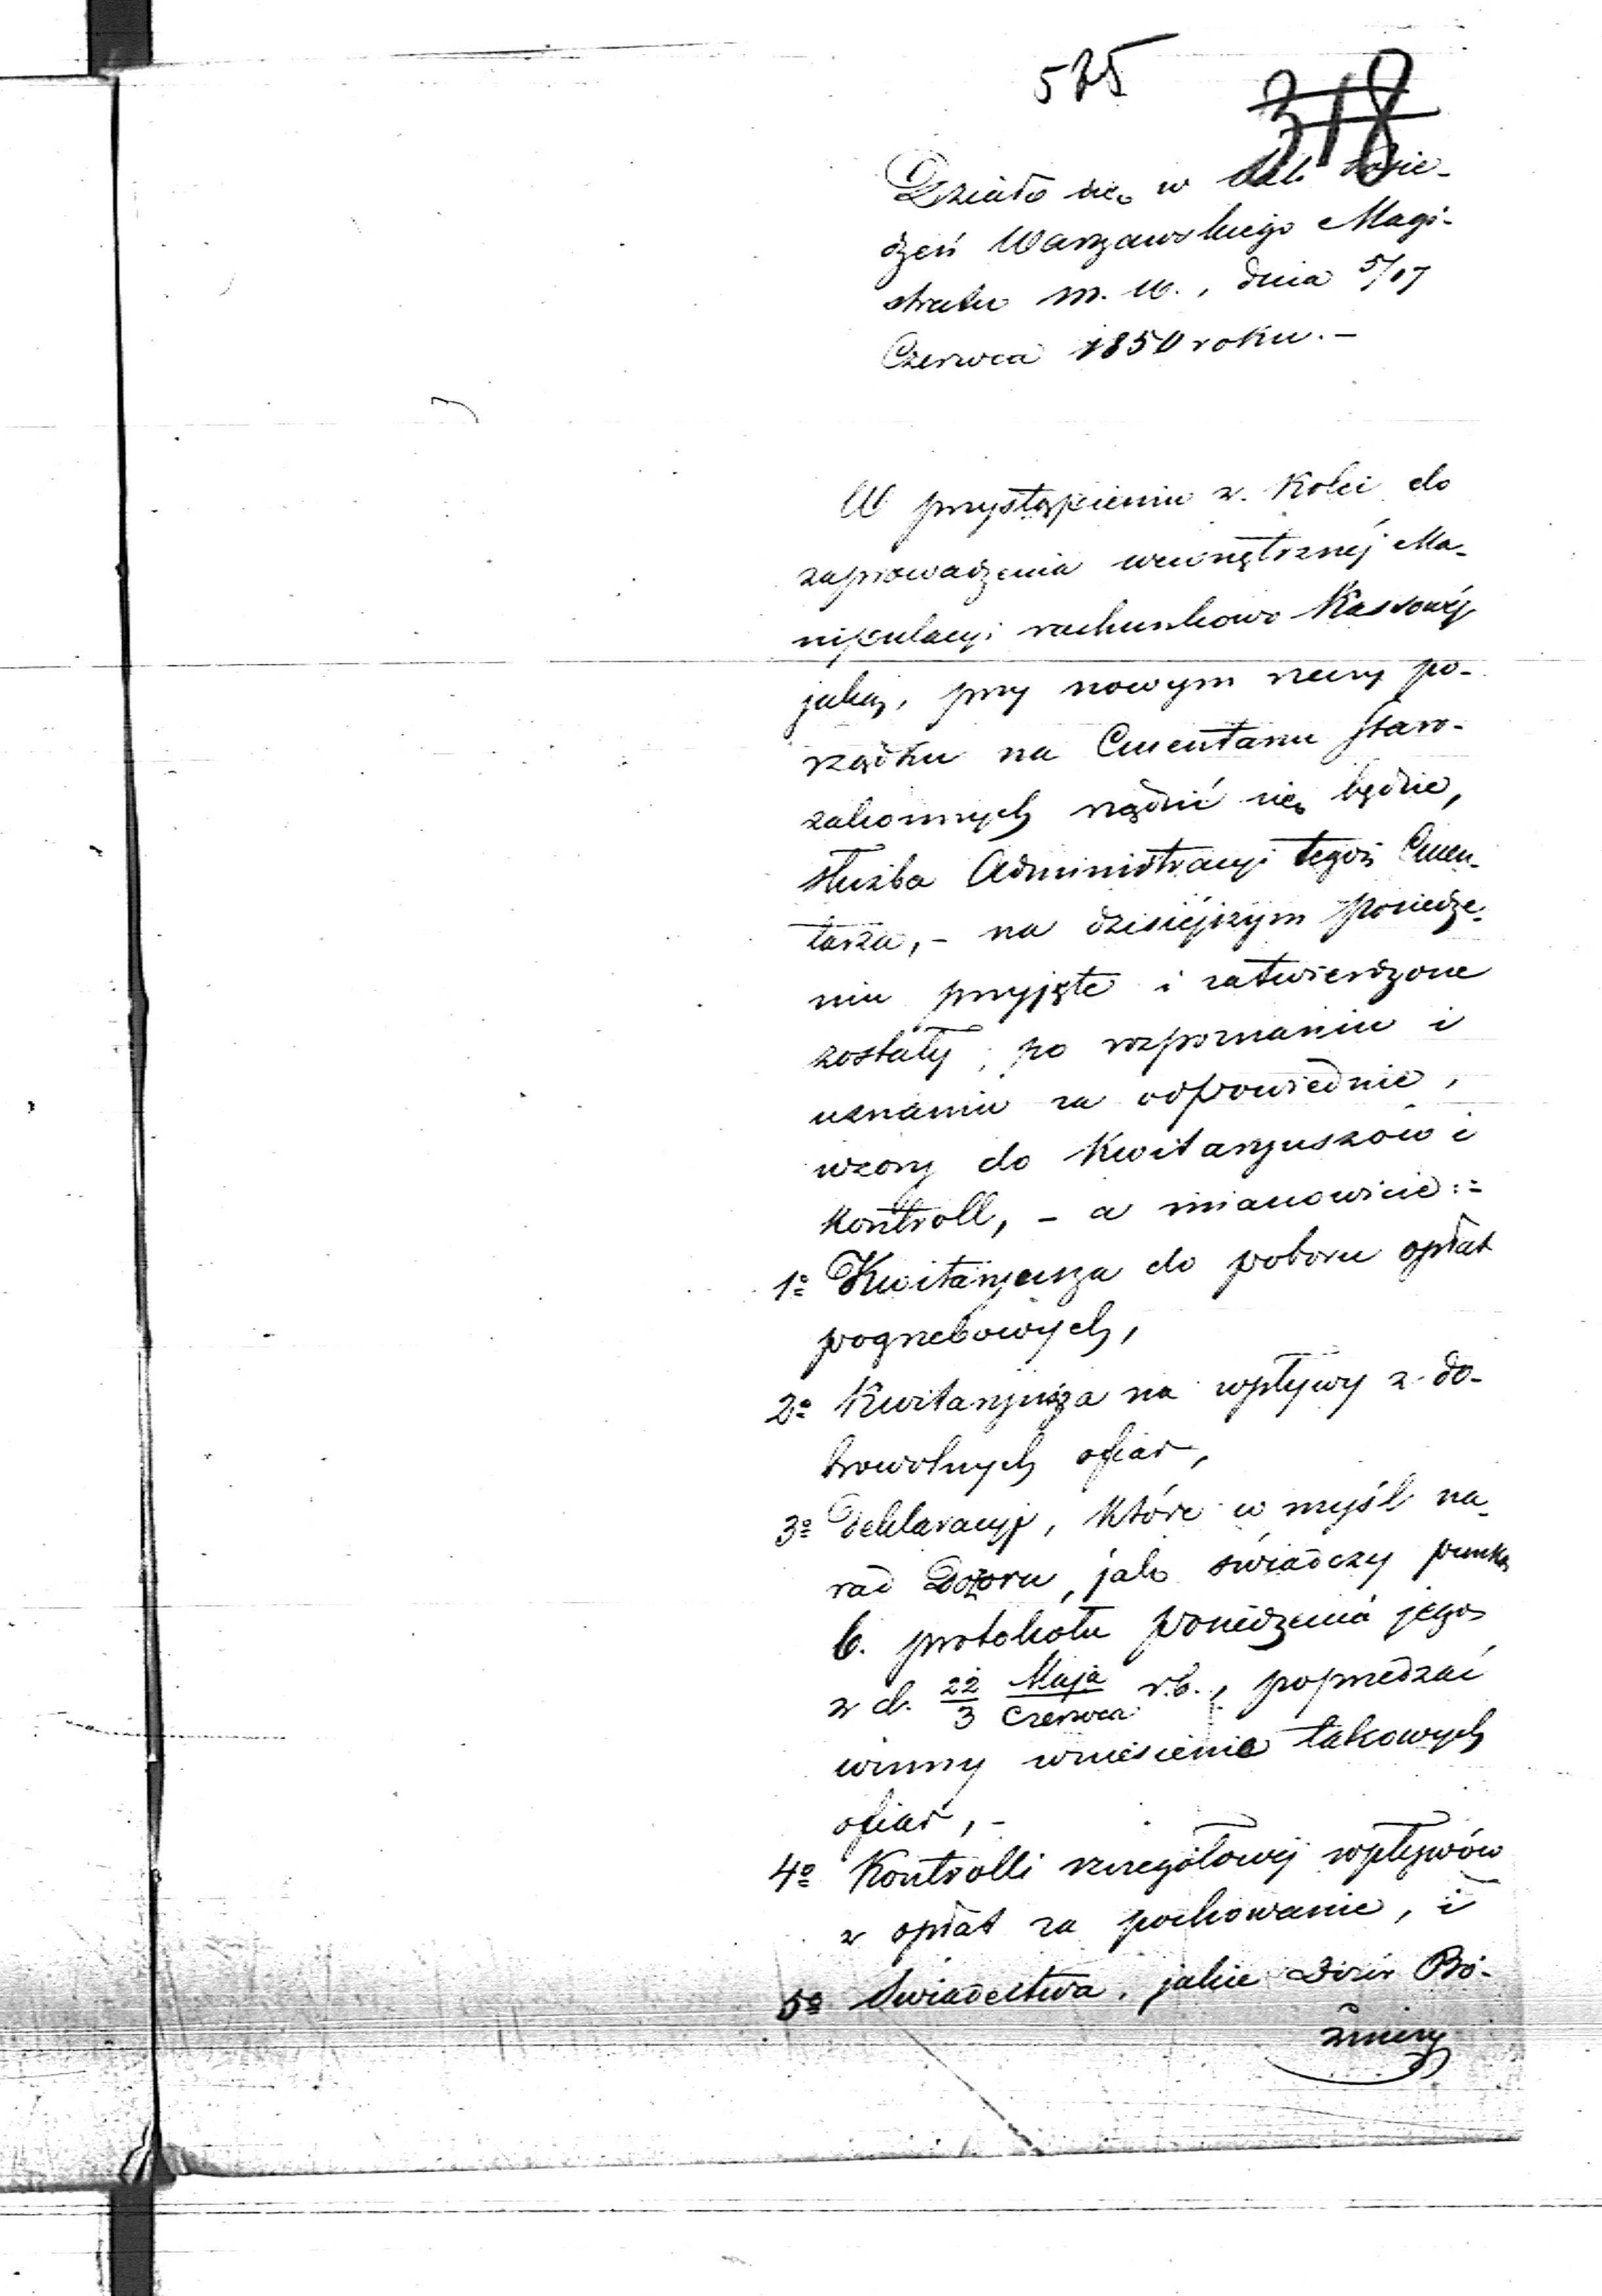 525
318
Działo się w Sali Posie-
dzeń Warszawskiego Magi-
stratu m. W., dnia 5/17
Czerwca 1850 roku. -
W przystąpieniu z Kolei do
zaprowadzenia wewnętrznéj Ma-
nipulacyi rachunkowo Kassowéj
jaką, przy nowym rzeczy po-
rządku na Cmentarzu Staro-
zakonnych rządzić się będzie,
służba Administracyi tegoż Cmen-
tarza, - na dzisiejszym posiedze-
niu przyjęte i zatwierdzone
zostały, po rozpoznaniu i
uznaniu za odpowiednie,
wzory do Kwitaryuszów i
Kontroll, - a mianowicie :=
1º Kwitaryusza do poboru opłat
pogrzebowych,
2º Kwitaryusza na wpływy z do-
browolnych ofiar,
3º Deklaracyje, które w myśl na-
rad Dozoru, jak świadczy punkt
6. protokołu posiedzenia jego
z d. 22/3 Maja/Czerwca r.b., poprzedzać
winny wniesienie takowych
ofiar, -
4º Kontrolli szczegółowéj wpływów
z opłat za pochowanie, i
5º Swiadectwa, jakie Dozór Bó-
źniczy